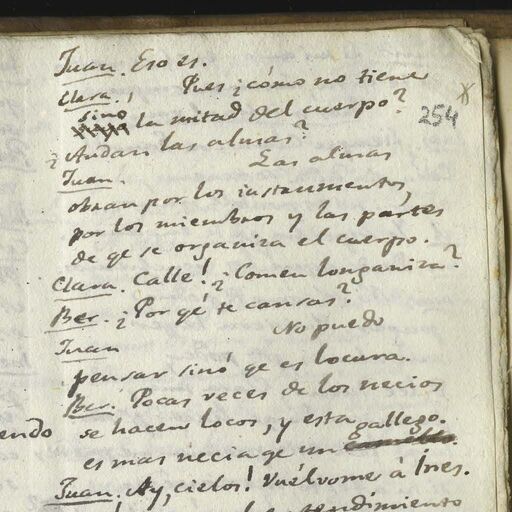 Juan. Eso es.
Clara. ! Pues ¿cómo no tiene
sino la mitad del cuerpo?
254
¿Andan las almas?
Juan. Las almas
obran por los instrumentos,
por los miembros y las partes
de qe se organiza el cuerpo.
Clara. Calle! ¿Comen longaniza?
Ber. ¿Por qé te cansas?
Juan No puedo
pensar sinó qe es locura.
Ber. Pocas veces de los necios
endo se hacen locos, y esta
es mas necia qe un gallego.
Juan. Ay, cielos! Vuélvome á Ines.